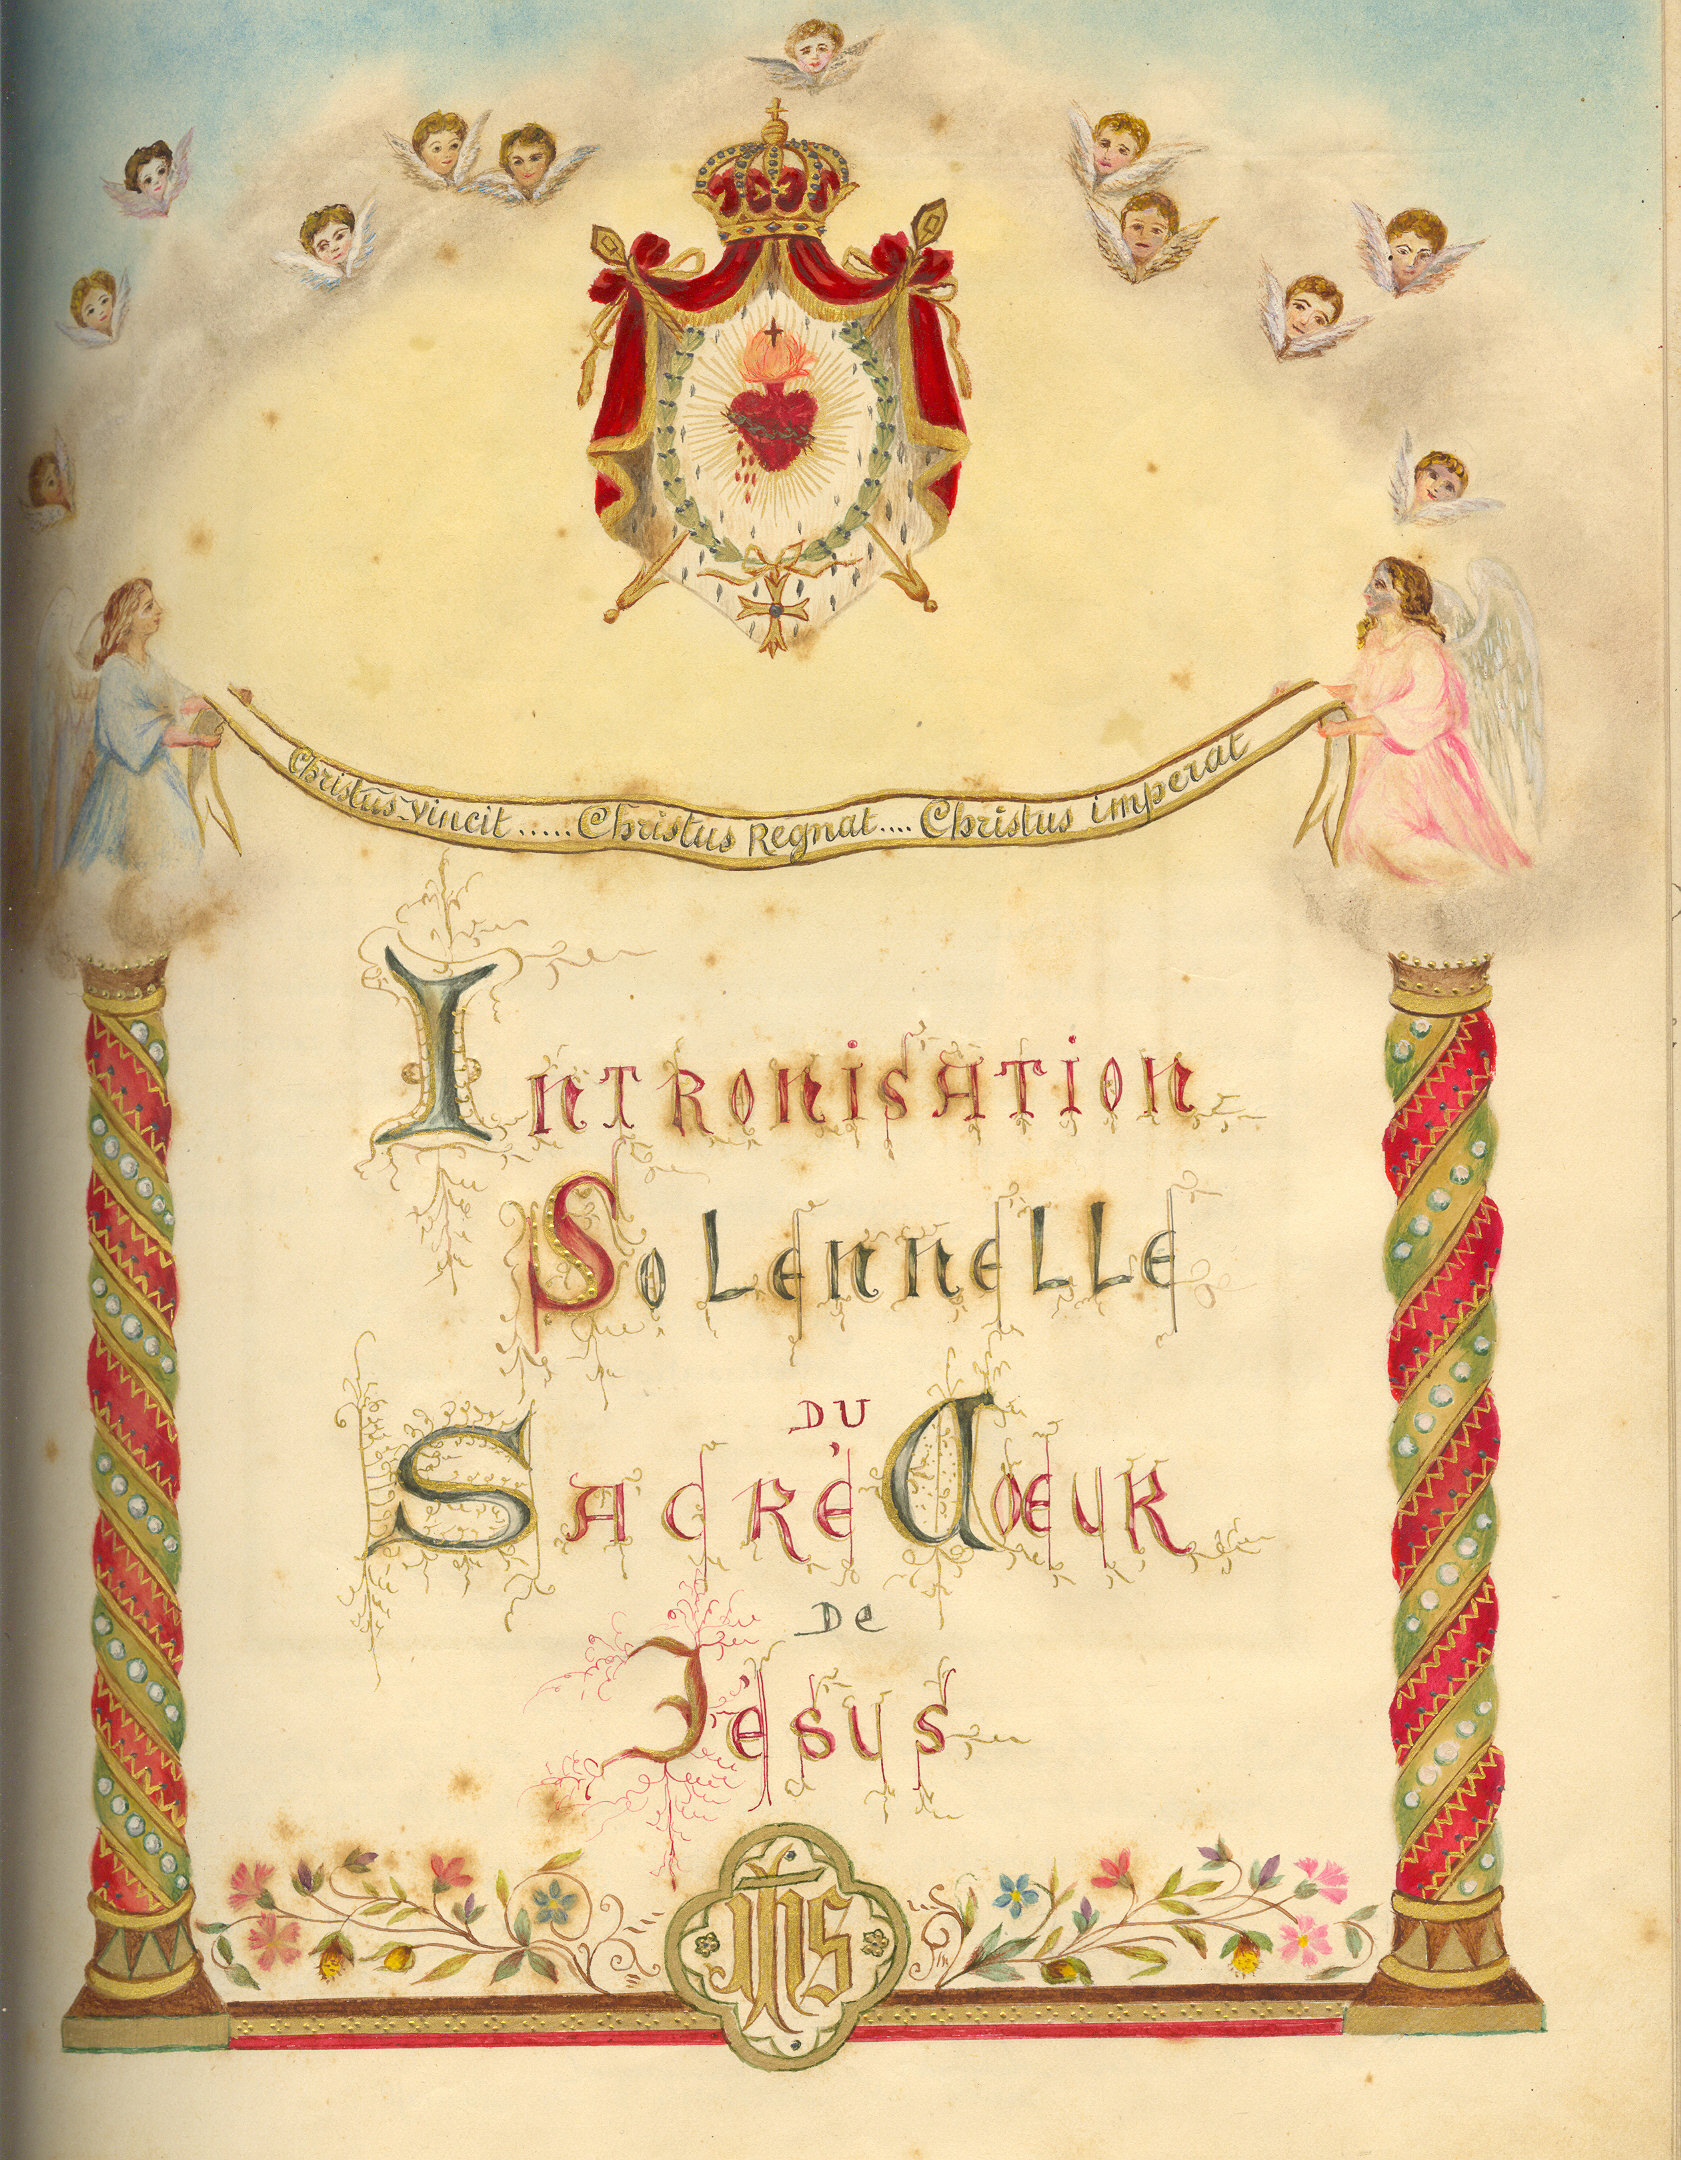 Christus Vincit ...... Christus Regnat .... Christus imperat
Intronisation
Solennelle
du
Sacré Coeur
de
Jésus
IHS